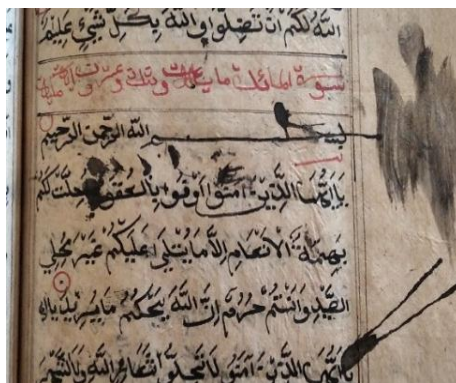 الله لكم ان تضلوا والله بكل شيئ عليم
سورة المائدة مائة وعشرون
بسم الله الرحمن الرحيم
يا ايها الذين امنوا اوفوا بالعقود احلت لكم
بهيمة الانعام الا ما يتلى عليكم غير محلي
الصيد وانتم حرم ان الله يحكم ما يريد يا اي
يا ايها الذين امنوا لا تحلوا شعائر الله ولا الشهر